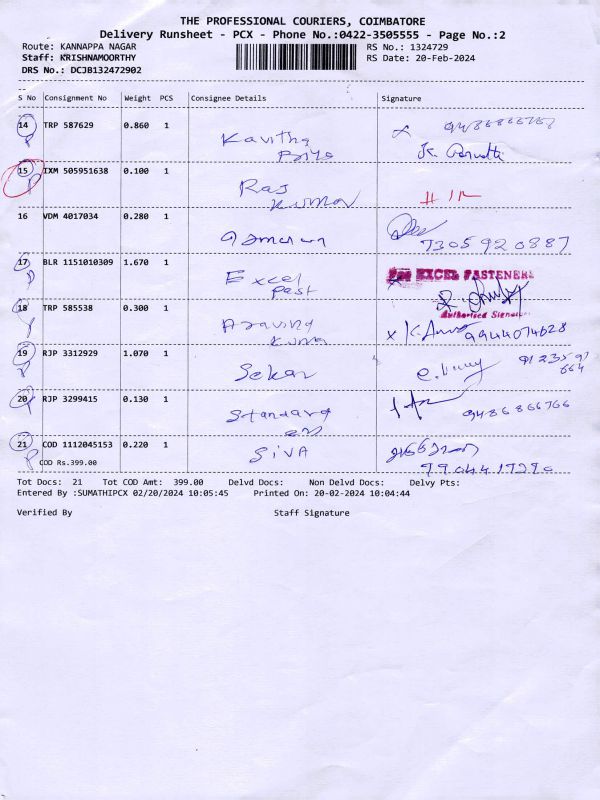 THE PROFESSIONAL COURIERS, COIMBATORE
Delivery Runsheet - PCX - Phone No.:0422-3505555 - Page No.:2
Route: KANNAPPA NAGAR RS No.: 1324729
Staff: KRISHNAMOORTHY RS Date: 20-Feb-2024
DRS No.: DCJB132472902
S No Consignment No Weight PCS Consignee Details Signature
14 TRP 587629 0.860 1 Kavitha
Priya
15 IXM 505951638 0.100 1 Raj
Kumar
16 VDM 4017034 0.280 1 7305920887
17 BLR 1151010309 1.670 1 Excel
Fast
EXCEL FASTENERS
Authorised Signatory
18 TRP 585538 0.300 1 Aravind
Kumar
9944074628
19 RJP 3312929 1.070 1 Sekar
20 RJP 3299415 0.130 1 Standard
9486866766
21 COD 1112045153 0.220 1 SIVA
COD Rs.399.00
Tot Docs: 21 Tot COD Amt: 399.00 Delvd Docs: Non Delvd Docs: Delvy Pts:
Entered By :SUMATHIPCX 02/20/2024 10:05:45 Printed On: 20-02-2024 10:04:44
Verified By Staff Signature